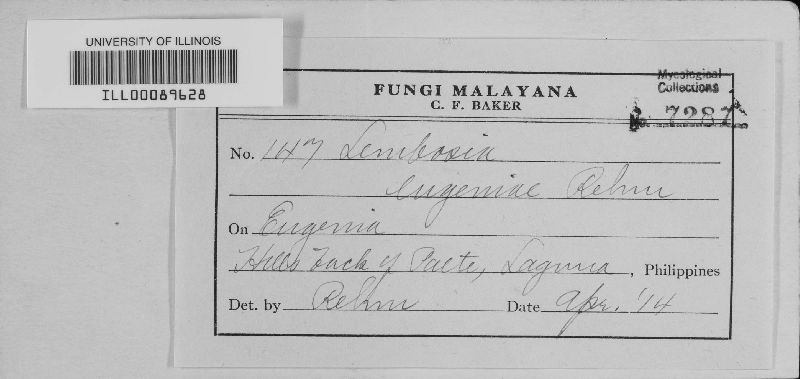 UNIVERSITY OF ILLINOIS
ILL00089628
Mycological
Collections
No. 7287
FUNGI MALAYANA
C. F. BAKER
No. 147 Lembosia
Eugeniae Rehm
On Eugenia
Hills back of Paete, Laguna, Philippines
Det. by Rehm Date Apr. '14